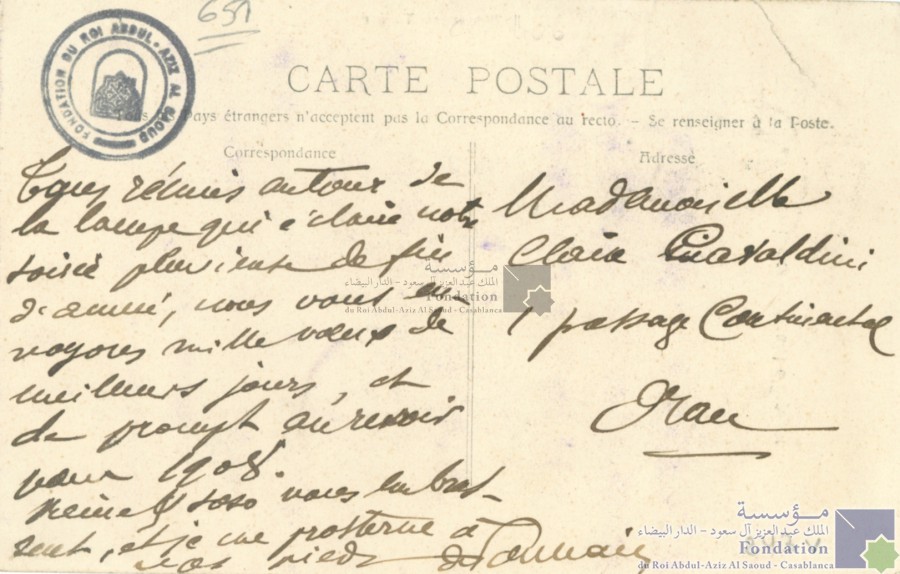 651
FONDATION DU ROI ABDUL-AZIZ AL SAOUD
CARTE POSTALE
Tous Pays étrangers n'acceptent pas la Correspondance au recto. - Se renseigner à la Poste.
Correspondance
Tous réunis autour de
la lampe qui éclaire notre
soirée pluvieuse de fin
d'année, nous vous en-
voyons mille vœux de
meilleurs jours, et
de prompt au revoir
pour 1908.
Reine & Soso vous embras-
sent, et je me prosterne à
vos pieds
Adresse
Mademoiselle
Claire
1 passage Continental
Oran
مؤسسة
الملك عبد العزيز آل سعود - الدار البيضاء
Fondation
du Roi Abdul-Aziz Al Saoud - Casablanca
مؤسسة
الملك عبد العزيز آل سعود - الدار البيضاء
Fondation
du Roi Abdul-Aziz Al Saoud - Casablanca